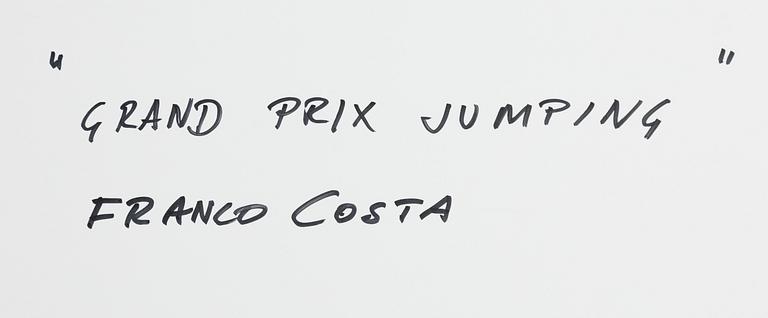 " GRAND PRIX JUMPING "
FRANCO COSTA